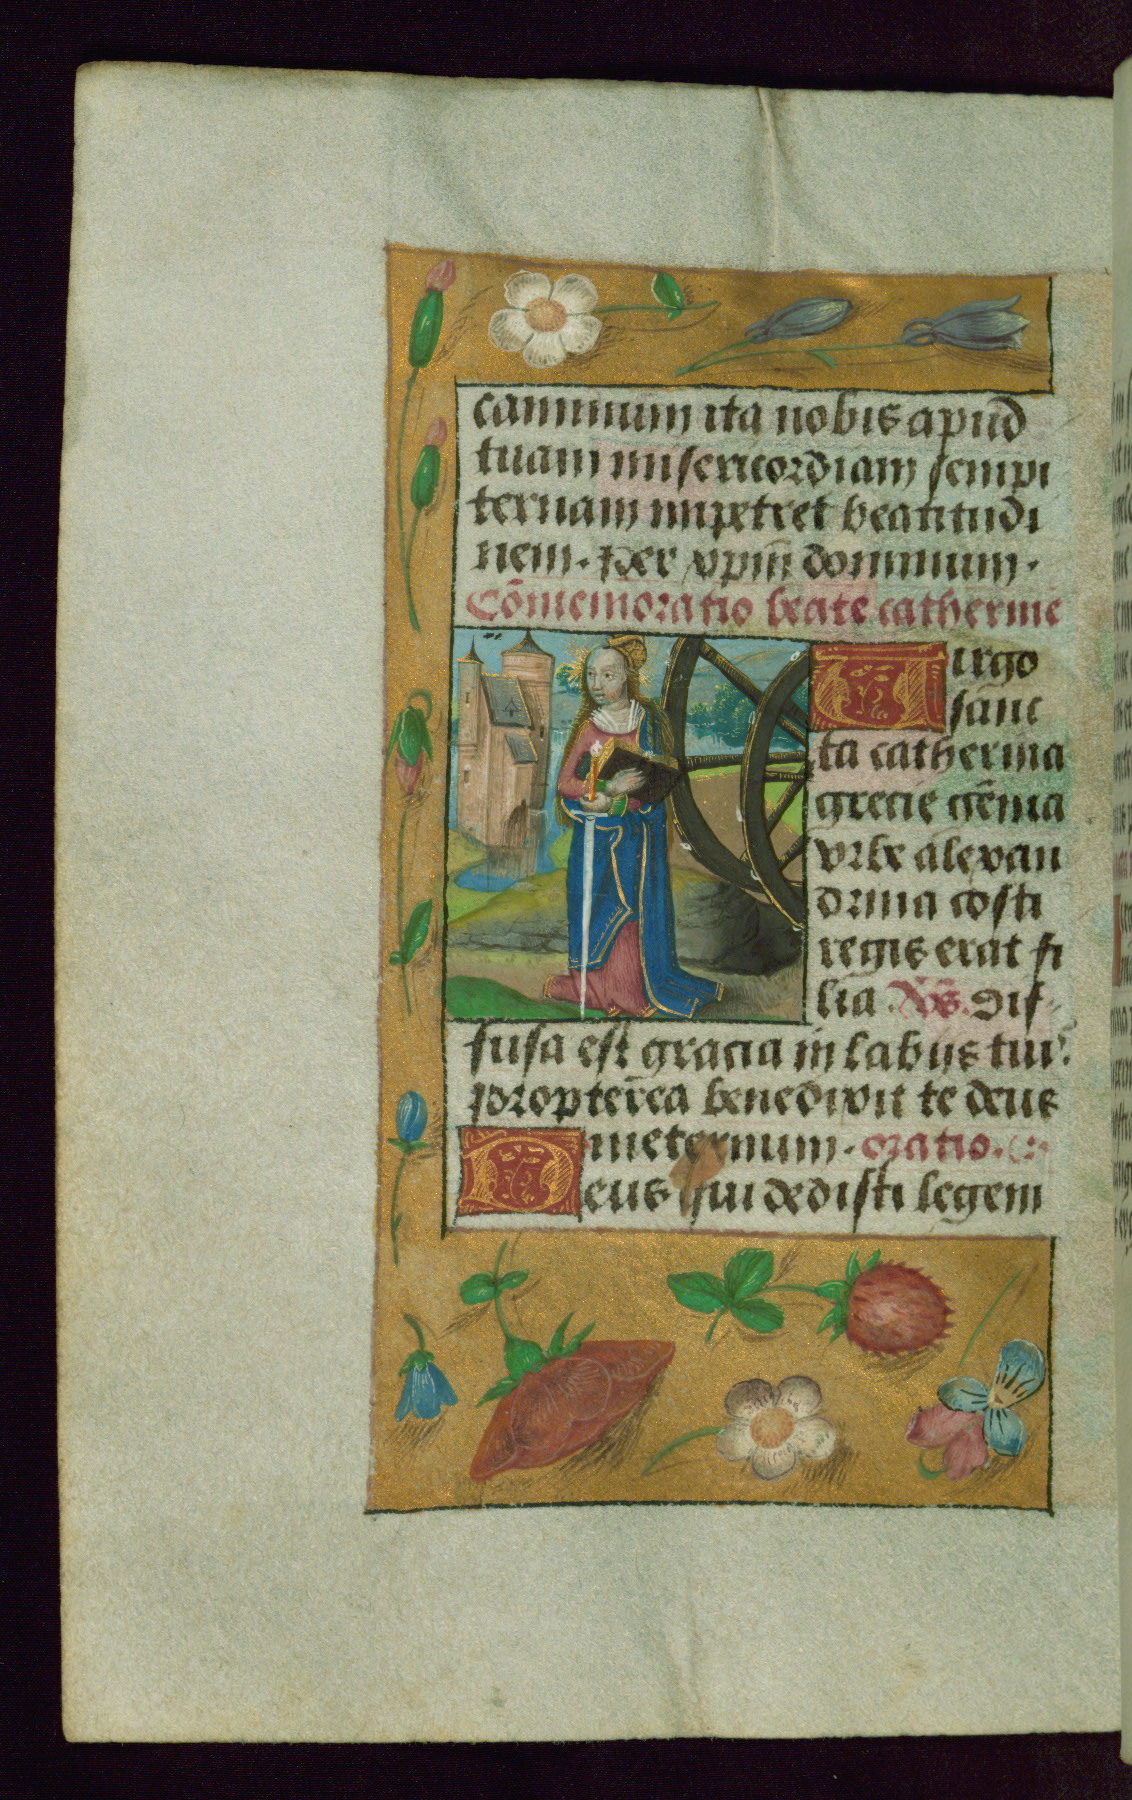 caminium ita nobis apud
tuam misericordiam sempi
ternam impetret beatitudi
nem. Per xpm̄ dominum.
Cōmemoratio beate catherine
Uirgo
sanc
ta catherina
grecie gēma
vrbe alexan
drina costi
regis erat fi
lia. Vs̄. Dif
fusa est gracia in labijs tuis.
propterea benedixit te deus
in eternum. oratio.
Deus qui dedisti legem